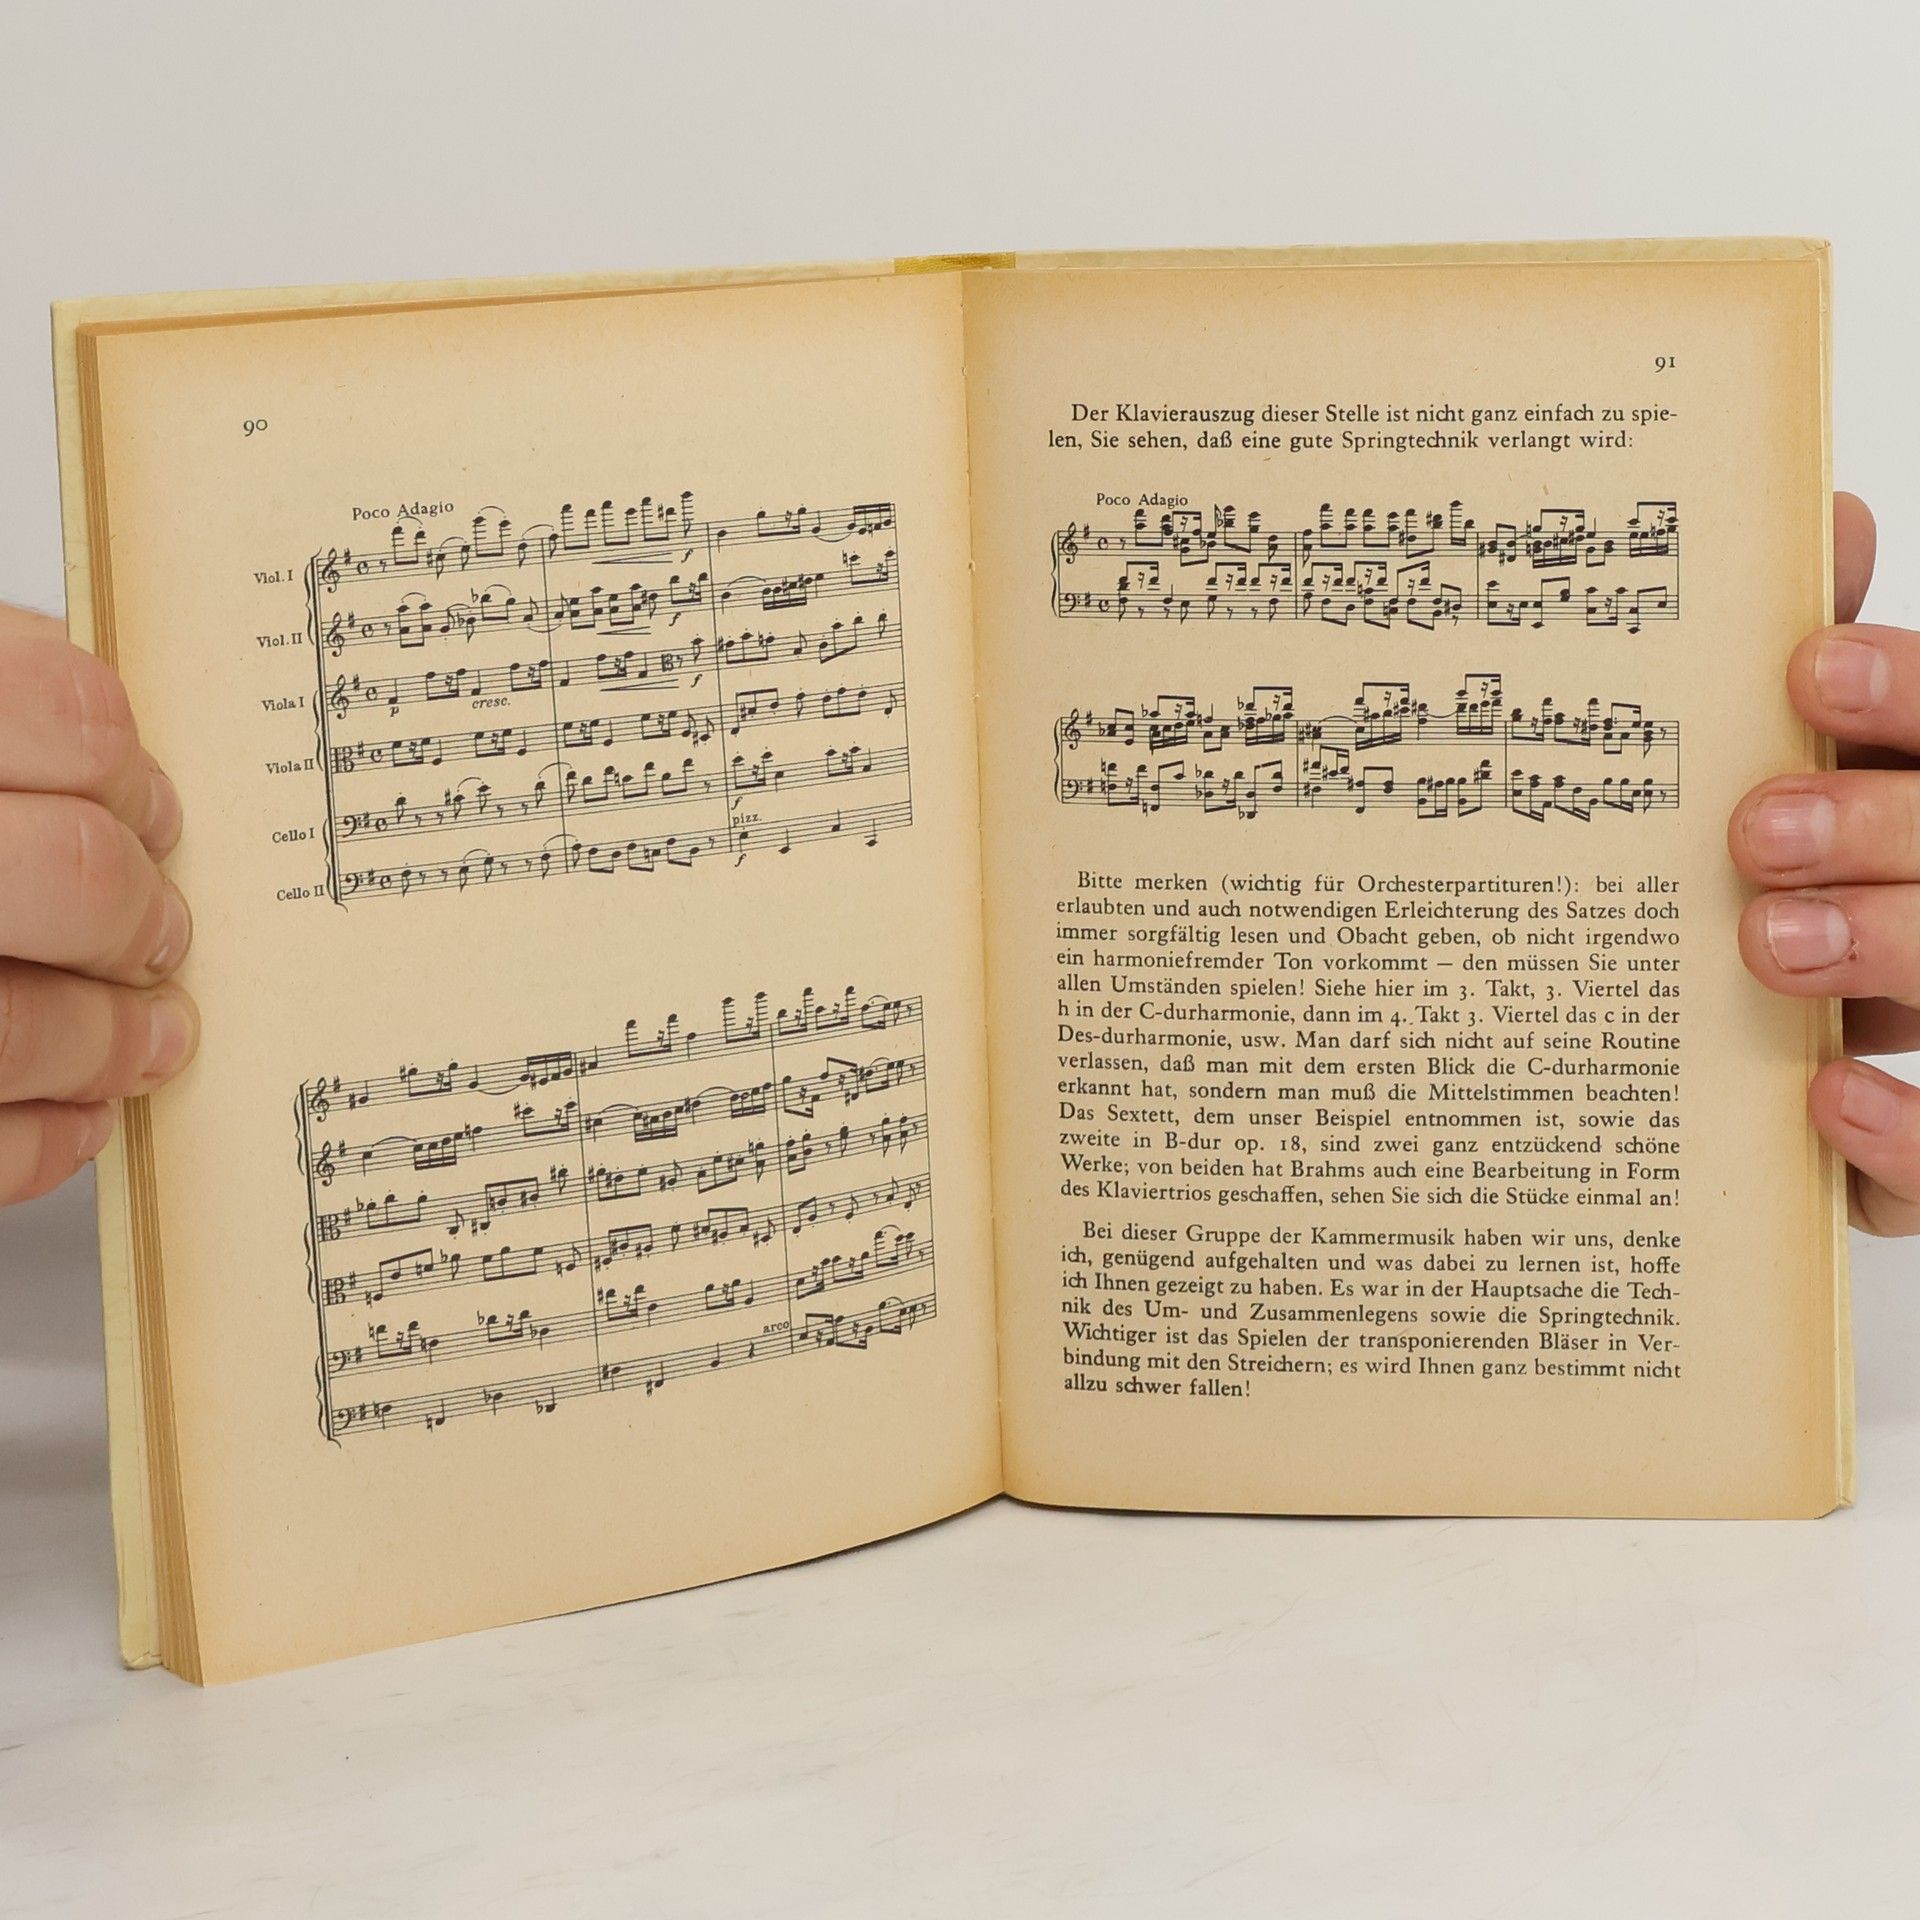 90
Poco Adagio
Viol. I
Viol. II
Viola I
p
cresc.
f
f
f
Viola II
Cello I
f
pizz.
Cello II
f
arco
91
Der Klavierauszug dieser Stelle ist nicht ganz einfach zu spie-
len, Sie sehen, daß eine gute Springtechnik verlangt wird:
Poco Adagio
Bitte merken (wichtig für Orchesterpartituren!): bei aller
erlaubten und auch notwendigen Erleichterung des Satzes doch
immer sorgfältig lesen und Obacht geben, ob nicht irgendwo
ein harmoniefremder Ton vorkommt — den müssen Sie unter
allen Umständen spielen! Siehe hier im 3. Takt, 3. Viertel das
h in der C-durharmonie, dann im 4. Takt 3. Viertel das c in der
Des-durharmonie, usw. Man darf sich nicht auf seine Routine
verlassen, daß man mit dem ersten Blick die C-durharmonie
erkannt hat, sondern man muß die Mittelstimmen beachten!
Das Sextett, dem unser Beispiel entnommen ist, sowie das
zweite in B-dur op. 18, sind zwei ganz entzückend schöne
Werke; von beiden hat Brahms auch eine Bearbeitung in Form
des Klaviertrios geschaffen, sehen Sie sich die Stücke einmal an!
Bei dieser Gruppe der Kammermusik haben wir uns, denke
ich, genügend aufgehalten und was dabei zu lernen ist, hoffe
ich Ihnen gezeigt zu haben. Es war in der Hauptsache die Tech-
nik des Um- und Zusammenlegens sowie die Springtechnik.
Wichtiger ist das Spielen der transponierenden Bläser in Ver-
bindung mit den Streichern; es wird Ihnen ganz bestimmt nicht
allzu schwer fallen!